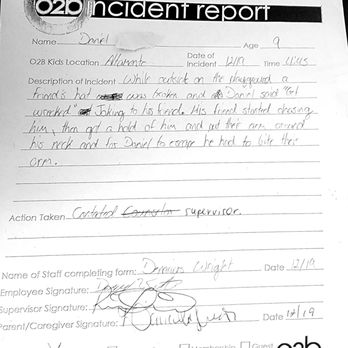 o2b incident report
Name Daniel Age 9
O2B Kids Location Altamonte Date of Incident 12/19 Time
Description of Incident While outside on the playground a
friend's hat was broken and Daniel said "get
wrecked" Joking to his friend. His friend started chasing
him, then got a hold of him and put their arm around
his neck and for Daniel to escape he had to bite their
arm.
Action Taken Contacted supervisor.
Name of Staff completing form: Wright Date 12/19
Employee Signature:
Supervisor Signature:
Parent/Caregiver Signature: Date 12/19
Guest o2b